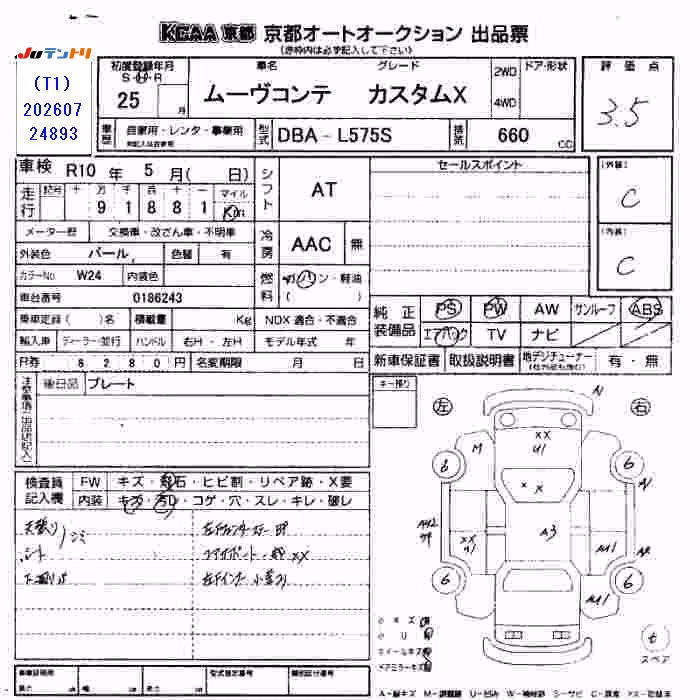 KCAA 京都 京都オートオークション 出品票
(赤枠内は必ず記入して下さい)
JUテントリ
(T1)
202607
24893
初度登録年月
S・H・R
25 月
車名 グレード
ムーヴコンテ カスタムX
2WD
4WD
ドア・形状
評価点
3.5
車歴
自家用・レンタ・事業用
型式
DBA-L575S
排気
660 CC
車検 R10 年 5 月( 日)
走行
記号 十 万 千 百 十 一 マイル
9 1 8 8 1 Km
シフト
AT
メーター歴 交換車・改ざん車・不明車
外装色 パール 色替 有
カラーNo. W24 内装色
車台番号 0186243
冷房
AAC 無
燃料
ガソリン・軽油
( )
乗車定員( )名 積載量 Kg NOX適合・不適合
輸入車 ディーラー・並行 ハンドル 右H・左H モデル年式 年
R券 8280円 名変期限 月 日
セールスポイント
(外装)
C
(内装)
C
純正装備品
PS PW AW サンルーフ ABS
エアバック TV ナビ
新車保証書 取扱説明書 地デジチューナー 有・無
注意事項(出品店記入)
後日品 プレート
キー残り
左 右
検査員記入欄
FW キズ・飛石・ヒビ割・リペア跡・X要
内装 キズ・汚レ・コゲ・穴・スレ・キレ・破レ
シミ
シート
N
M
XX
U1
6
6
A3
XX
A1
6
6
スペア
キズ
U
ホイールキズ
ドアミラーキズ
車両証明用
長さ cm 幅 cm 高さ cm
型式指定番号
類別区分番号